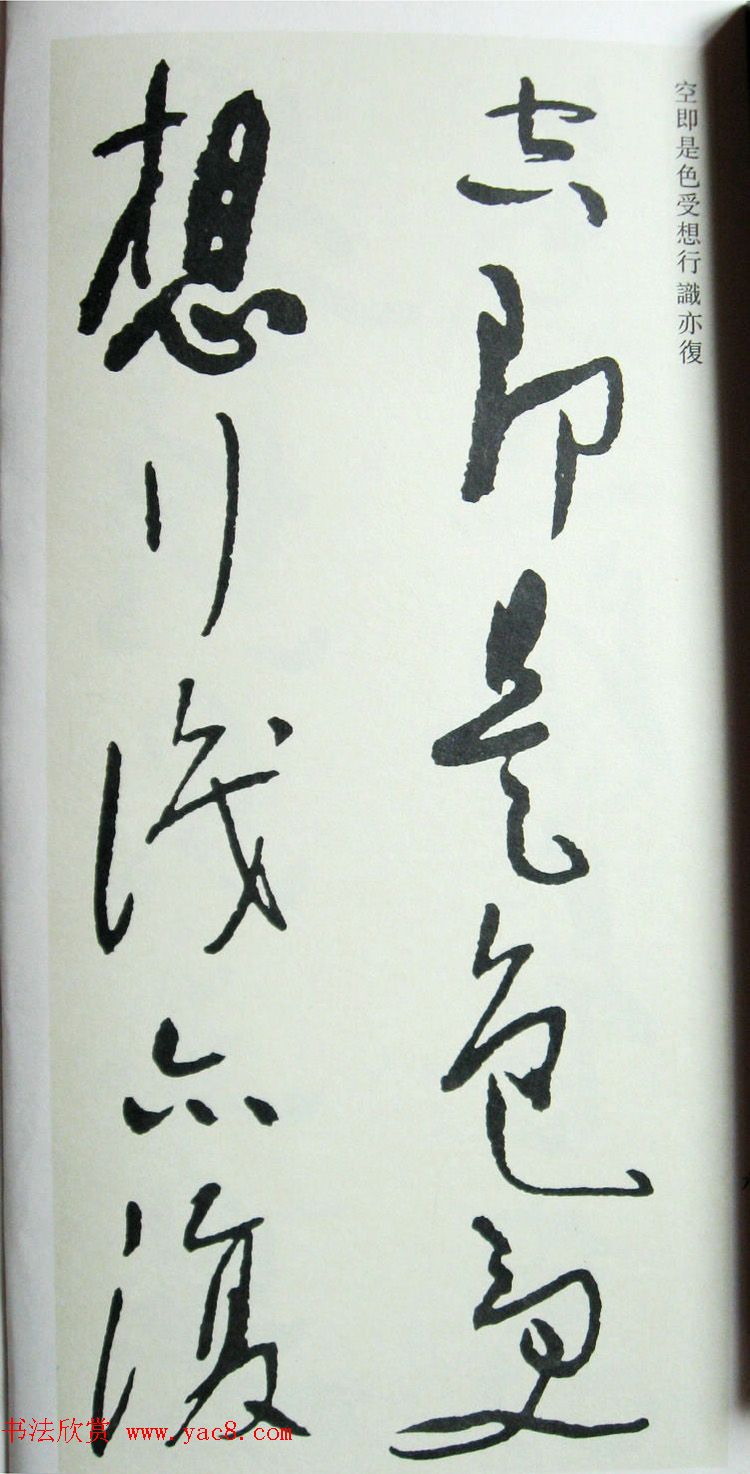 空即是色受想行識亦復
空即是色受
想行識亦復
书法欣赏 www.yac8.com